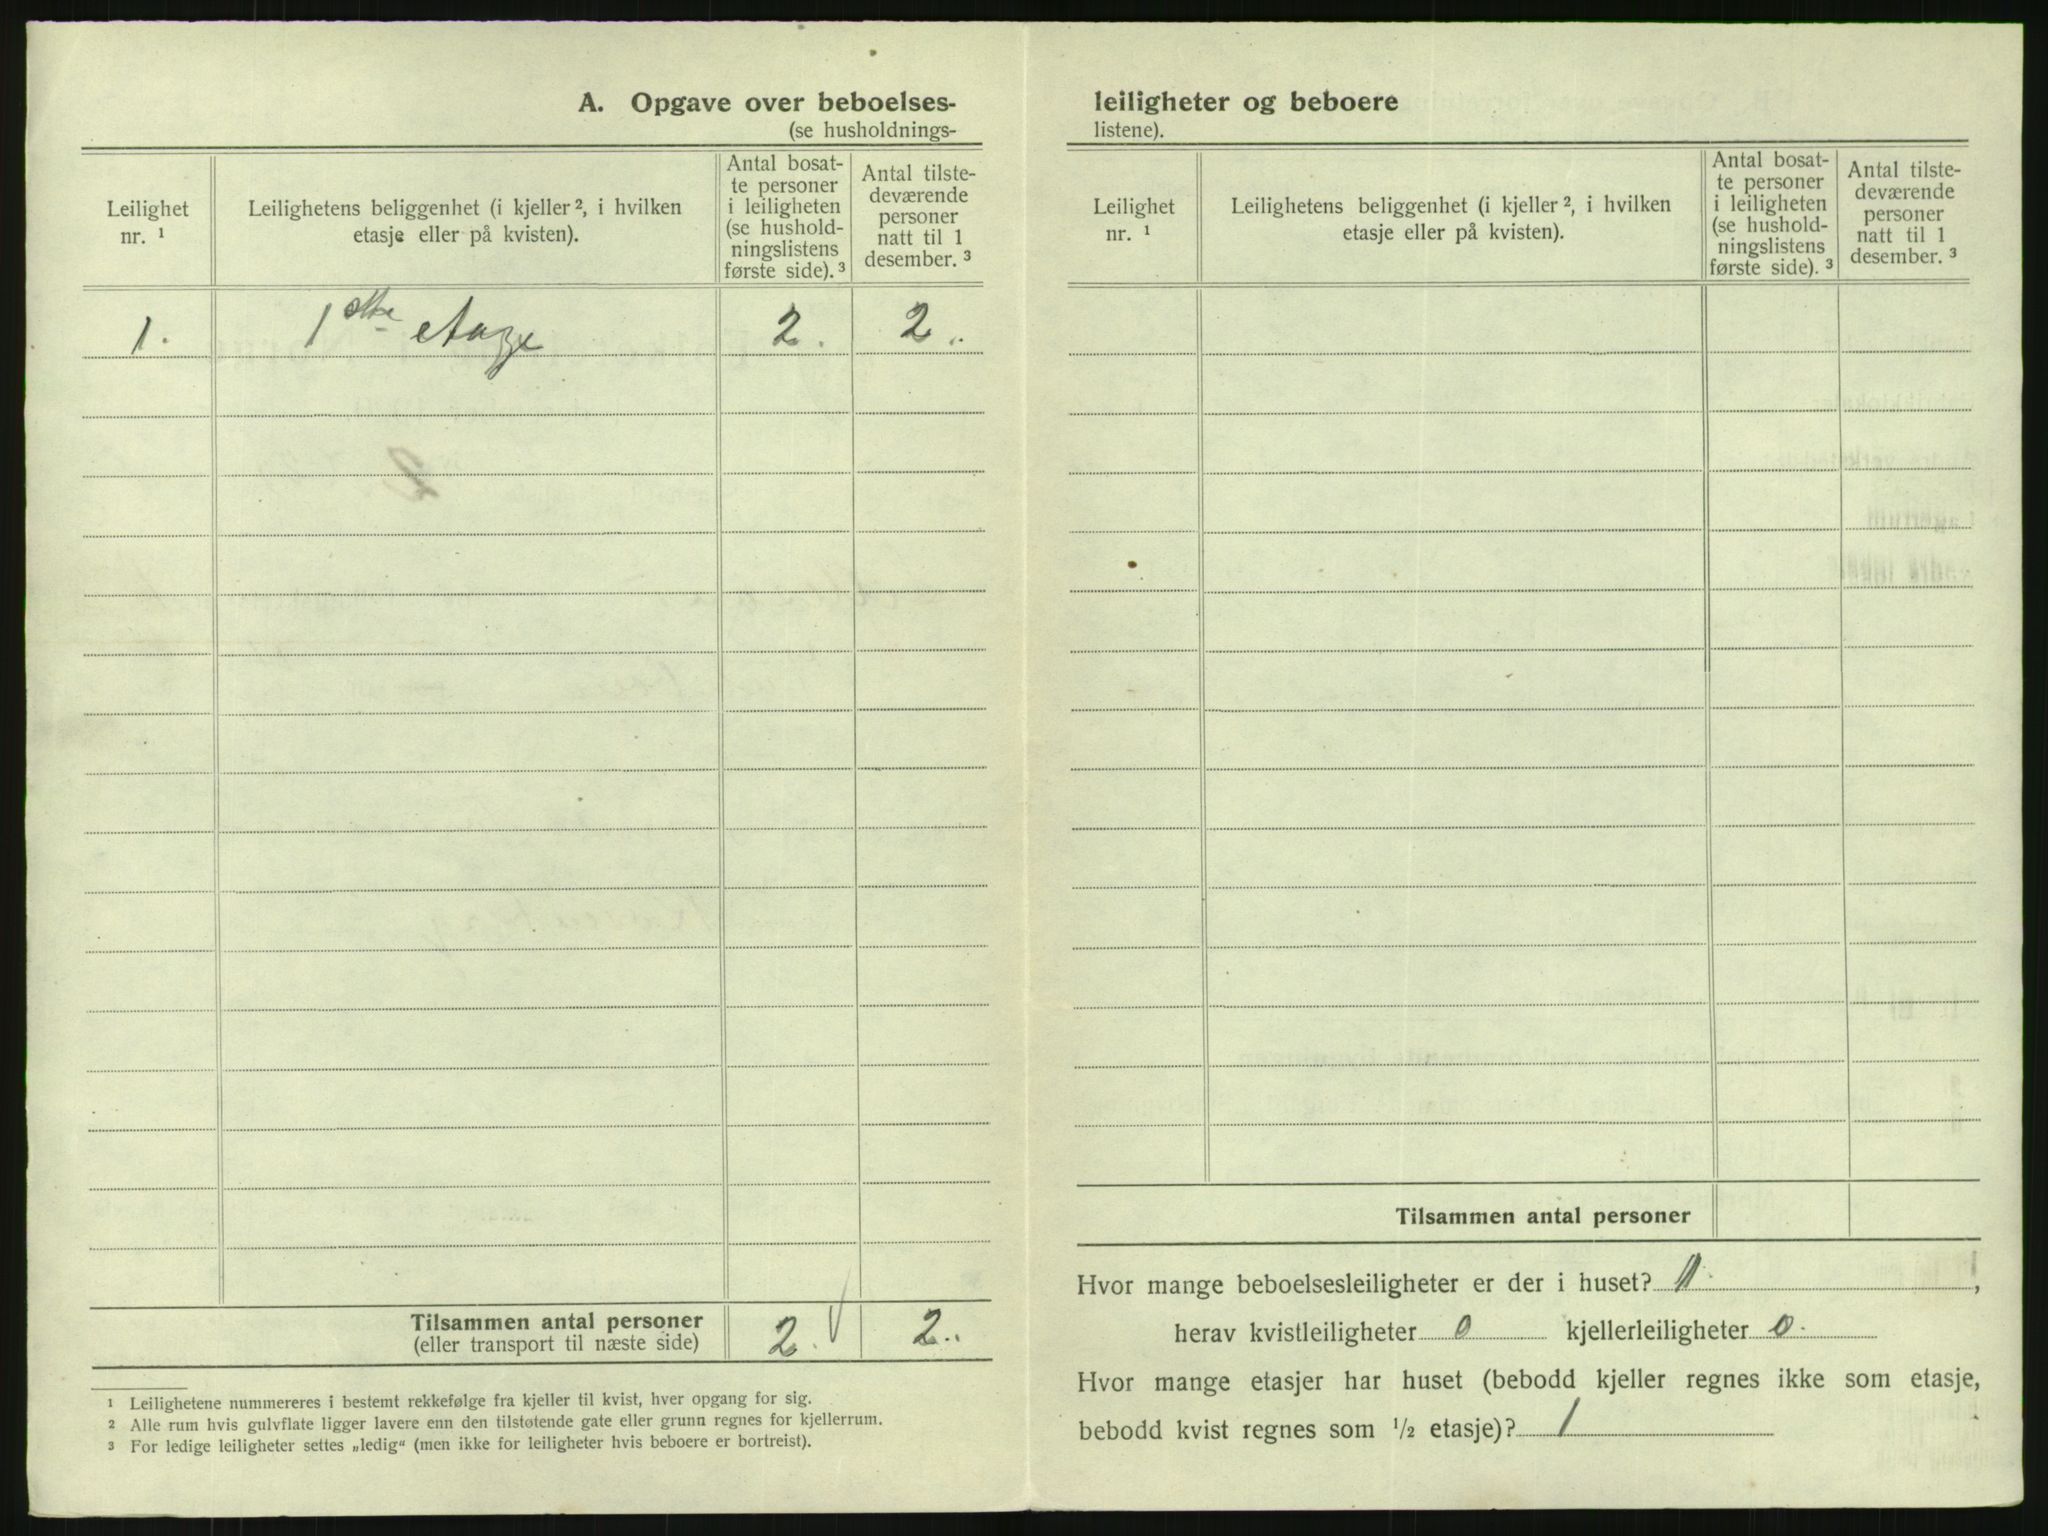 A. Opgave over beboelses-
(se husholdnings-
Leilighet
nr. ¹
Leilighetens beliggenhet (i kjeller ², i hvilken
etasje eller på kvisten).
Antal bosat-
te personer
i leiligheten
(se hushold-
ningslistens
første side). ³
Antal tilste-
deværende
personer
natt til 1
desember. ³
1. 1ste etage 2. 2.
Tilsammen antal personer
(eller transport til næste side)
2. 2.
¹ Leilighetene nummereres i bestemt rekkefølge fra kjeller til kvist, hver opgang for sig.
² Alle rum hvis gulvflate ligger lavere enn den tilstøtende gate eller grunn regnes for kjellerrum.
³ For ledige leiligheter settes „ledig“ (men ikke for leiligheter hvis beboere er bortreist).
leiligheter og beboere
listene).
Leilighet
nr. ¹
Leilighetens beliggenhet (i kjeller ², i hvilken
etasje eller på kvisten).
Antal bosat-
te personer
i leiligheten
(se hushold-
ningslistens
første side). ³
Antal tilste-
deværende
personer
natt til 1
desember. ³
Tilsammen antal personer
Hvor mange beboelsesleiligheter er der i huset? 1.,
herav kvistleiligheter 0 kjellerleiligheter 0.
Hvor mange etasjer har huset (bebodd kjeller regnes ikke som etasje,
bebodd kvist regnes som ½ etasje)? 1